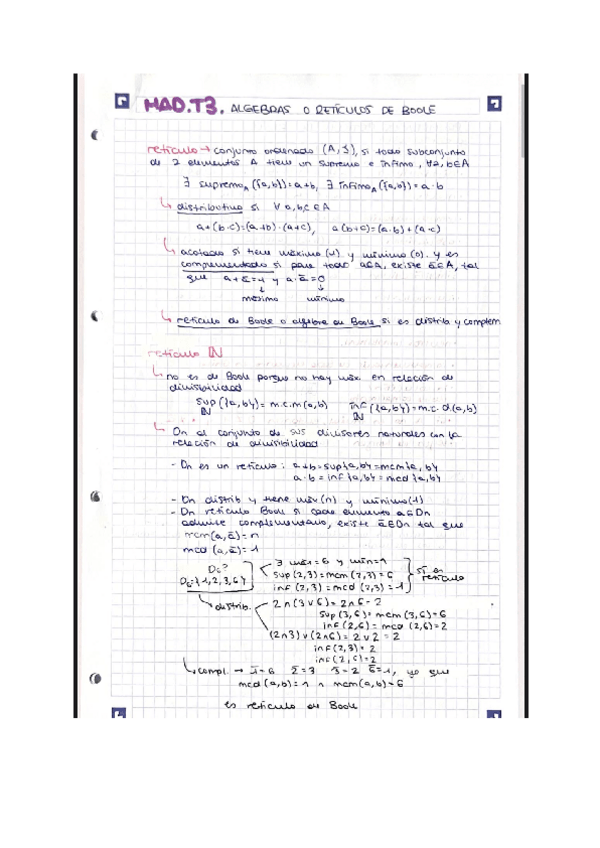 MAD.T3. ALGEBRAS O RETÍCULOS DE BOOLE
retículo → conjunto ordenado (A, ≤), si todo subconjunto
de 2 elementos A tiene un supremo e ínfimo, ∀a,b∈A
∃ supremo_A ({a,b})=a+b, ∃ ínfimo_A ({a,b})=a·b
↳ distributivo si ∀ a,b,c ∈ A
a+(b·c)=(a+b)·(a+c), a(b+c)=(a·b)+(a·c)
↳ acotado si tiene máximo (1) y mínimo (0). y es
complementado si para todo a∈A, existe ā∈A, tal
que a+ā=1 y a·ā=0
↓ ↓
máximo mínimo
↳ retículo de Boole o algebra de Boole si es distrib y complem
retículo ℕ
↳ no es de Boole porque no hay máx en relación de
divisibilidad
sup({a,b})=m.c.m(a,b) inf({a,b})=m.c.d.(a,b)
ℕ ℕ
↳ Dn al conjunto de sus divisores naturales con la
relación de divisibilidad
- Dn es un retículo: a+b=sup{a,b}=mcm{a,b}
a·b=inf{a,b}=mcd{a,b}
- Dn distrib y tiene máx(n) y mínimo(1)
- Dn retículo Boole si cada elemento a∈Dn
admite complementario, existe ā∈Dn tal que
mcm(a,ā)=n
mcd(a,ā)=1
D6?
D6={1,2,3,6}
∃ máx=6 y mín=1
sup(2,3)=mcm(2,3)=6
inf(2,3)=mcd(2,3)=1
sí es
retículo
↳ distrib.
2∧(3∨6)=2∧6=2
sup(3,6)=mcm(3,6)=6
inf(2,6)=mcd(2,6)=2
(2∧3)∨(2∧6)=2∨2=2
inf(2,3)=2
inf(2,6)=2
↳ compl. → 1̄=6 2̄=3 3̄=2 6̄=1, ya que
mcd(a,b)=1 ∧ mcm(a,b)=6
es retículo de Boole